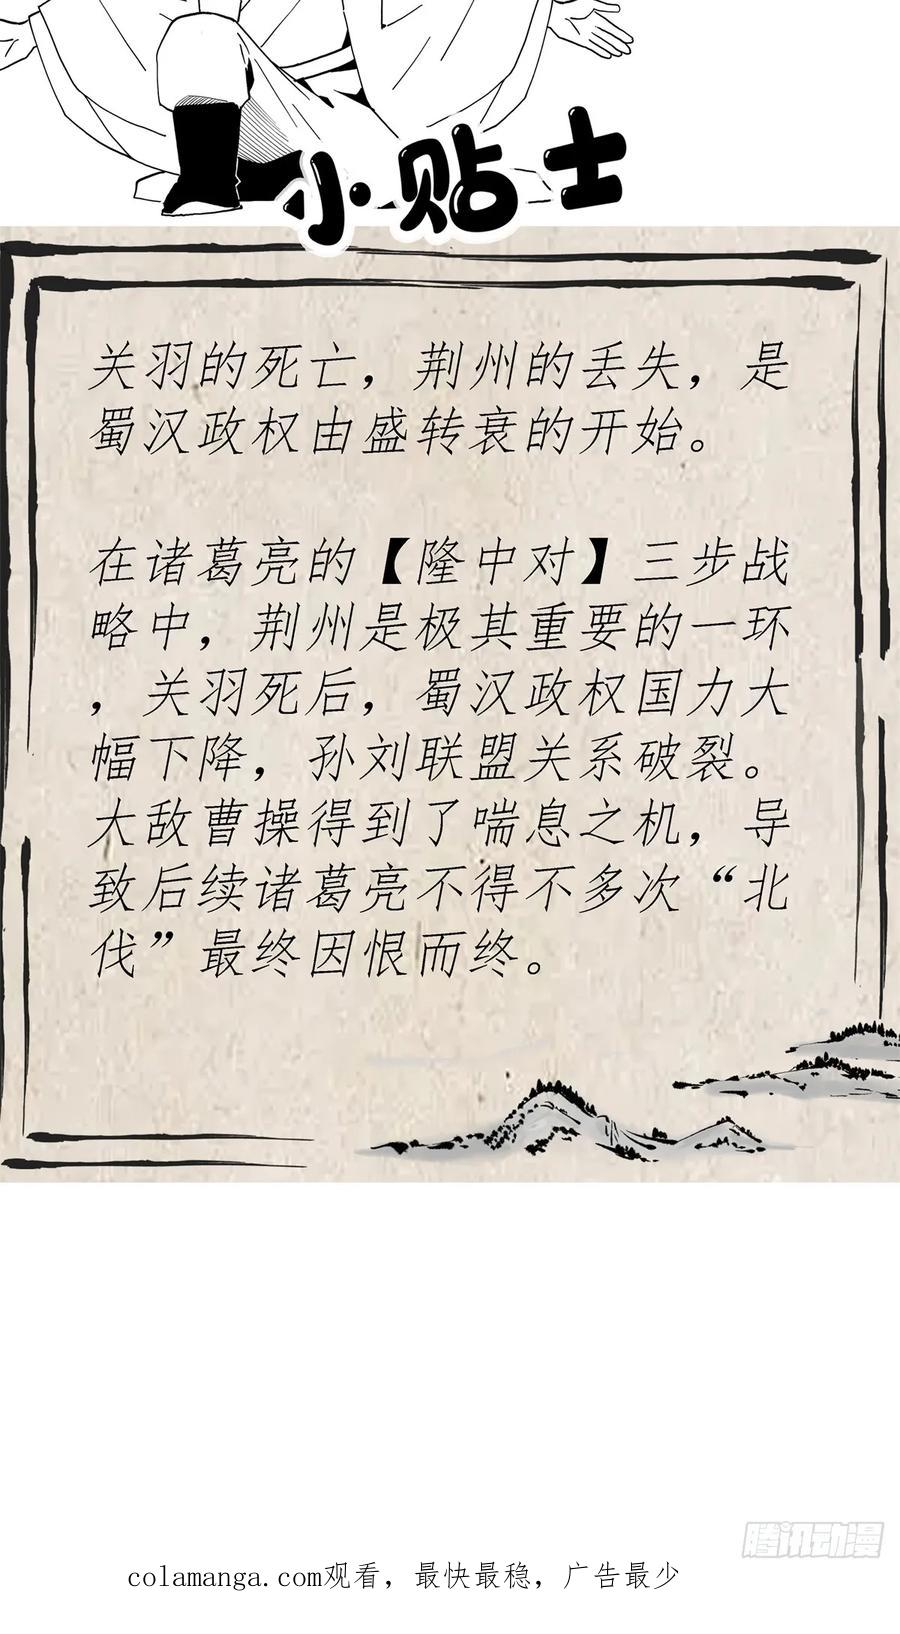 小贴士
关羽的死亡，荆州的丢失，是
蜀汉政权由盛转衰的开始。
在诸葛亮的【隆中对】三步战
略中，荆州是极其重要的一环
，关羽死后，蜀汉政权国力大
幅下降，孙刘联盟关系破裂。
大敌曹操得到了喘息之机，导
致后续诸葛亮不得不多次“北
伐”最终因恨而终。
腾讯动漫
colamanga.com观看，最快最稳，广告最少